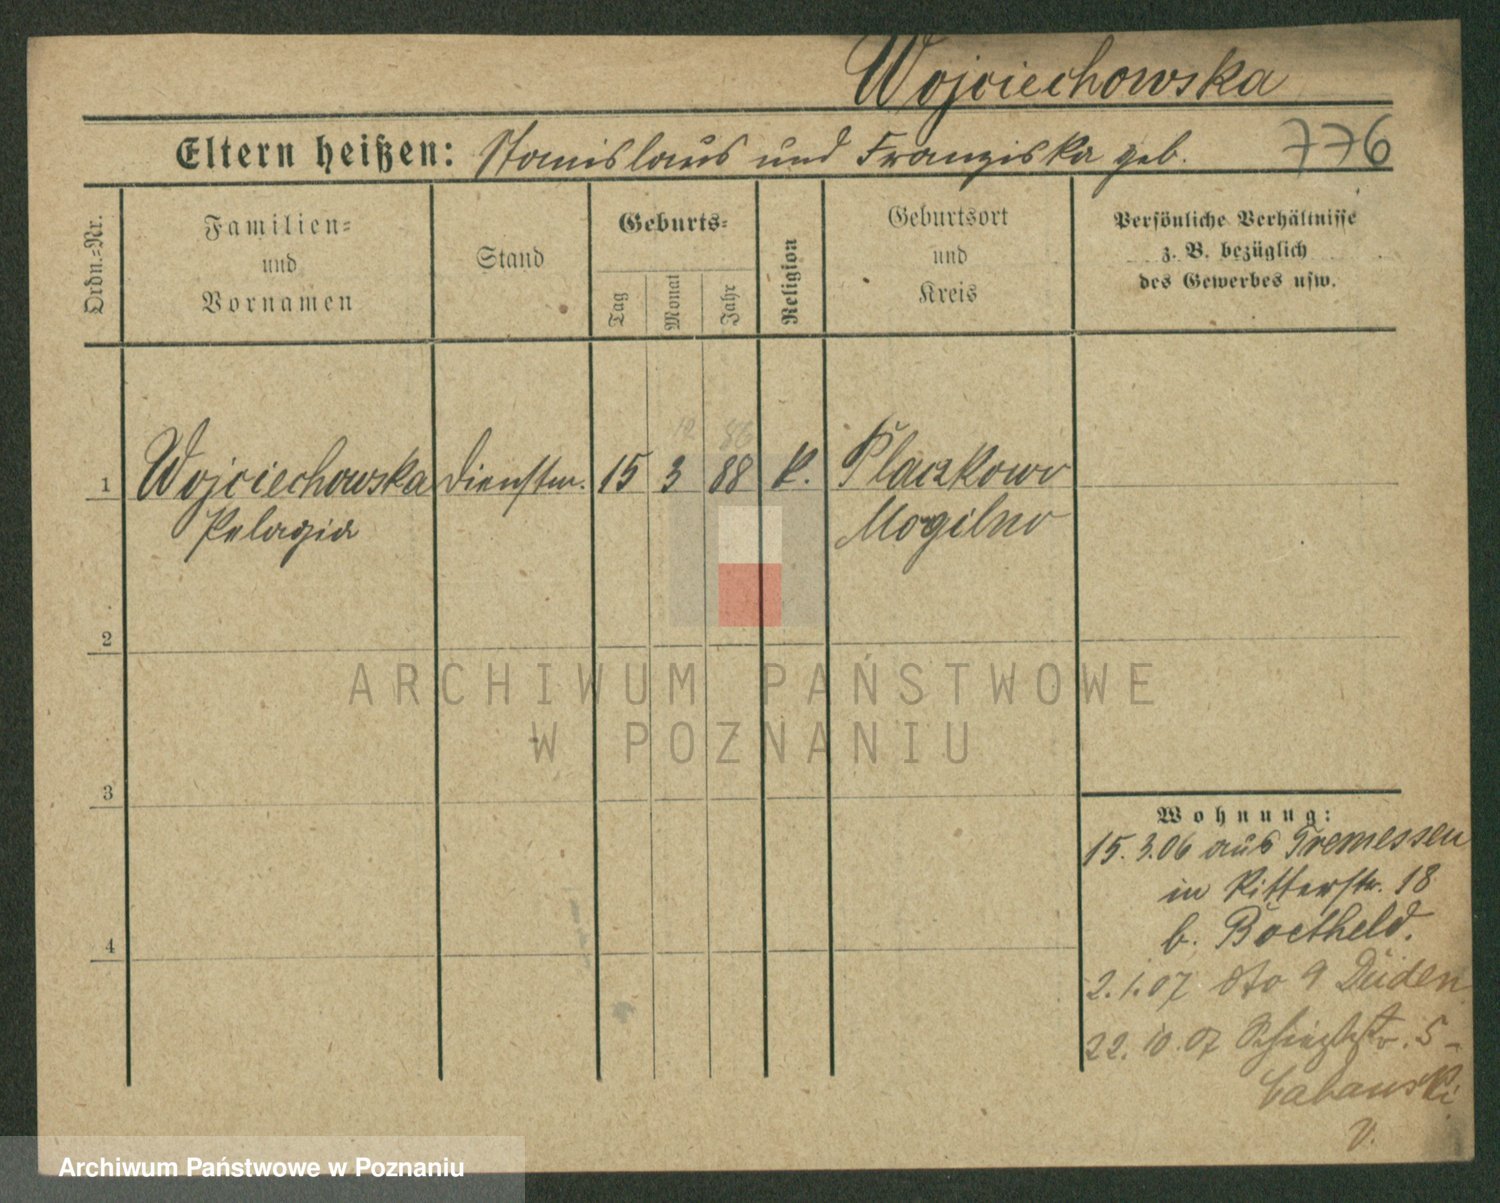 Wojciechowska
Eltern heißen: Stanislaus und Franziska geb. 776
Ordn.-Nr.
Familien-
und
Vornamen
Stand
Geburts-
Tag
Monat
Jahr
Religion
Geburtsort
und
Kreis
Persönliche Verhältnisse
z. B. bezüglich
des Gewerbes usw.
12 86
1 Wojciechowska Dienstm. 15 3 88 k. Placzkowo
Pelagia Mogilno
2
3
4
Wohnung:
15.3.06 aus Tremessen
in Ritterstr. 18
b. Boetheld.
2.1.07 dto 9 Düden
22.10.07 5-
V.
ARCHIWUM PAŃSTWOWE
W POZNANIU
Archiwum Państwowe w Poznaniu